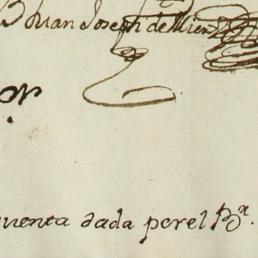 Juan Joseph de Mier
or
cuenta dada por el Br.